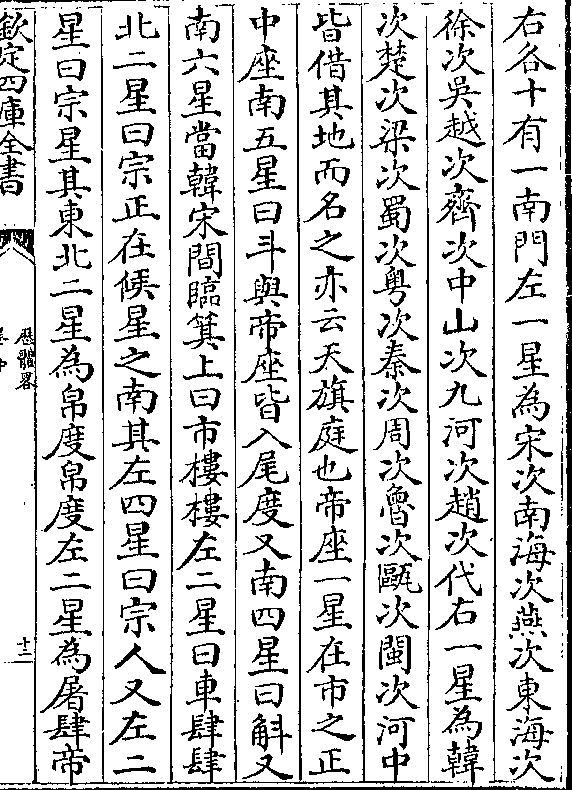 右各十有一南門左一星為宋次南海次燕次東海次
徐次吳越次齊次中山次九河次趙次代右一星為韓
次楚次梁次蜀次粤次秦次周次魯次甌次閩次河中
皆借其地而名之亦云天旗庭也帝座一星在市之正
中座南五星曰斗與帝座皆入尾度又南四星曰斛又
南六星當韓宋間臨箕上曰市樓樓左二星曰車肆肆
北二星曰宗正在候星之南其左四星曰宗人又左二
星曰宗星其東北二星為帛度帛度左二星為屠肆帝
欽定四庫全書
厯體畧
卷中
十二